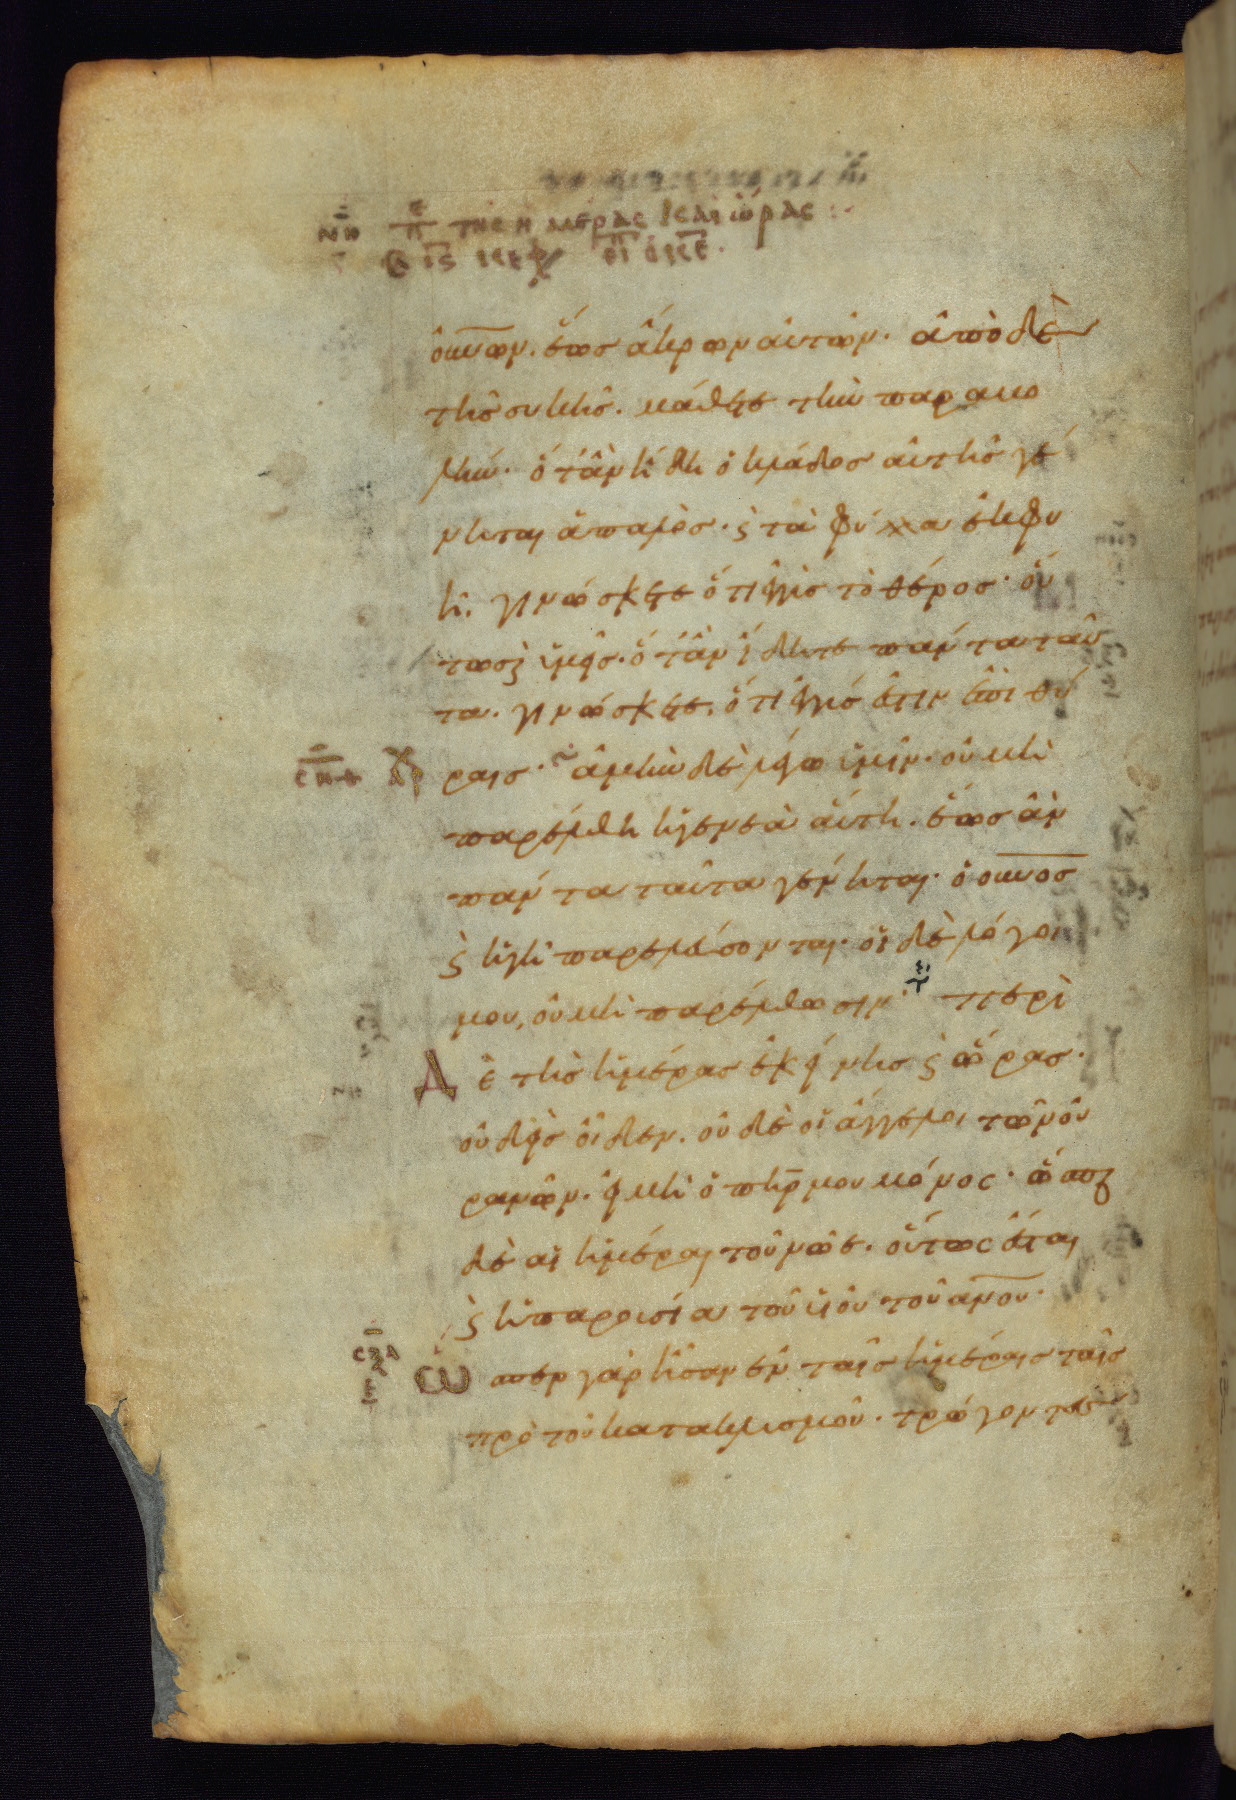 νη π̅ε̅ της ημέρας καὶ ὥρας :·
ὀυνῶν. ἕως ἄκρων αὐτῶν· ἀπὸ δὲ
τῆς συκῆς. μάθετε τὴν παραβο
λήν· ὅταν ἤδη ὁ κλάδος αὐτῆς γέ
νηται ἁπαλὸς· ϗ τὰ φύλλα ἐκφύ
η. γινώσκετε ὅτι ἐγγὺς τὸ θέρος· οὕ
τως ϗ ὑμεῖς· ὅταν ἴδητε πάντα ταῦ
τα. γινώσκετε, ὅτι ἐγγύς ἐστιν ἐπὶ θύ
ραις· ἀμὴν δὲ λέγω ὑμῖν· οὐ μὴ
παρέλθη ἡ γενεὰ αὕτη. ἕως ἂν
πάντα ταῦτα γένηται· ὁ ο̅υ̅ν̅ο̅ς̅
ϗ ἡ γῆ παρελεύσονται· οἱ δὲ λόγοι
μου, οὐ μὴ παρέλθωσιν· περὶ
Δὲ τῆς ἡμέρας ἐκείνης ϗ ὥρας·
οὐδεὶς οἶδεν. οὐδὲ οἱ ἄγγελοι τῶν οὐ
ρανῶν. εἰ μὴ ὁ π̅η̅ρ̅ μου μόνος· ὥσπερ
δὲ αἱ ἡμέραι τοῦ νῶε. οὕτως ἔσται
ϗ ἡ παρουσία τοῦ υἱοῦ τοῦ α̅ν̅ο̅υ̅·
Ὥσπερ γὰρ ἦσαν ἐν ταῖς ἡμέραις ταῖς
πρὸ τοῦ κατακλυσμοῦ. τρώγοντες